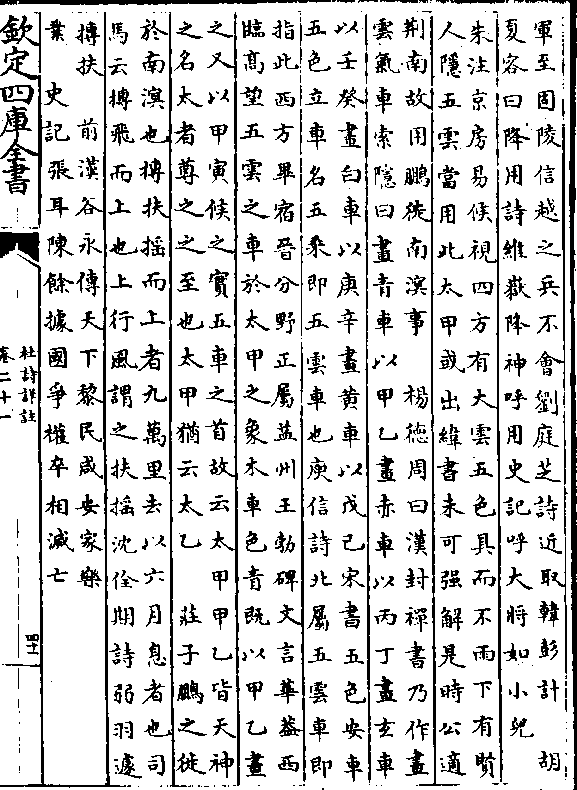 軍至固陵信越之兵不會劉庭芝詩近取韓彭計　胡
夏容曰降用詩維嶽降神呼用史記呼大將如小兒
朱注京房易候視四方有大雲五色具而不雨下有賢
人隱五雲當用此太甲或出緯書未可强解是時公適
荆南故用鵬徙南溟事　楊德周曰漢封禪書乃作畫
雲氣車索隱曰畫青車以甲乙畫赤車以丙丁畫玄車
以壬癸畫白車以庚辛畫黄車以戊己宋書五色安車
五色立車名五乘即五雲車也庾信詩北屬五雲車即
指此西方畢宿晉分野正屬益州王勃碑文言華葢西
臨髙望五雲之車於太甲之象木車色青既以甲乙畫
之又以甲寅候之實五車之首故云太甲甲乙皆天神
之名太者尊之之至也太甲猶云太乙　莊子鵬之徙
於南溟也摶扶摇而上者九萬里去以六月息者也司
馬云摶飛而上也上行風謂之扶摇沈佺期詩弱羽遽
摶扶　前漢谷永傳天下黎民咸安家樂
業　史記張耳陳餘據國爭權卒相滅亡
欽定四庫全書
杜詩詳註
卷二十一
四十